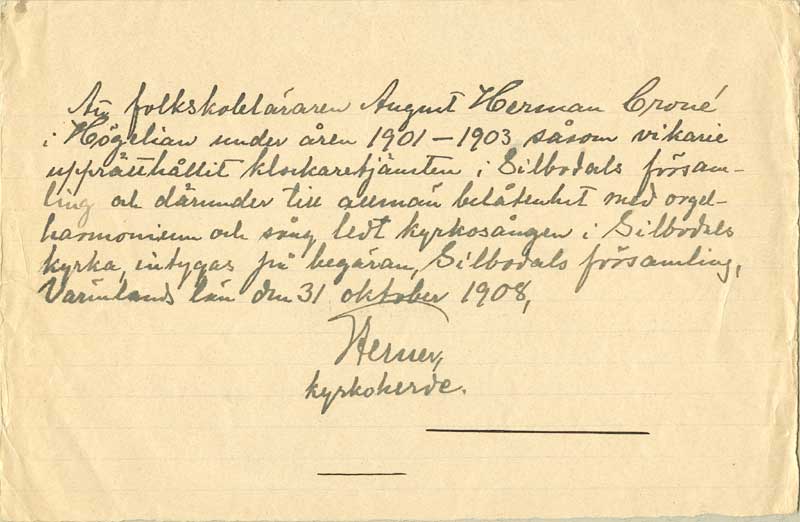 At folkskoleläraren August Herman Croné
i Högelian under åren 1901–1903 såsom vikarie
upprätthållit klockaretjänsten i Silbodals försam-
ling och därunder till allmän belåtenhet med orgel-
harmonium och sång ledt kyrkosången i Silbodals
kyrka, intygas på begäran, Silbodals församling,
Värmlands län den 31 oktober 1908,
kyrkoherde.